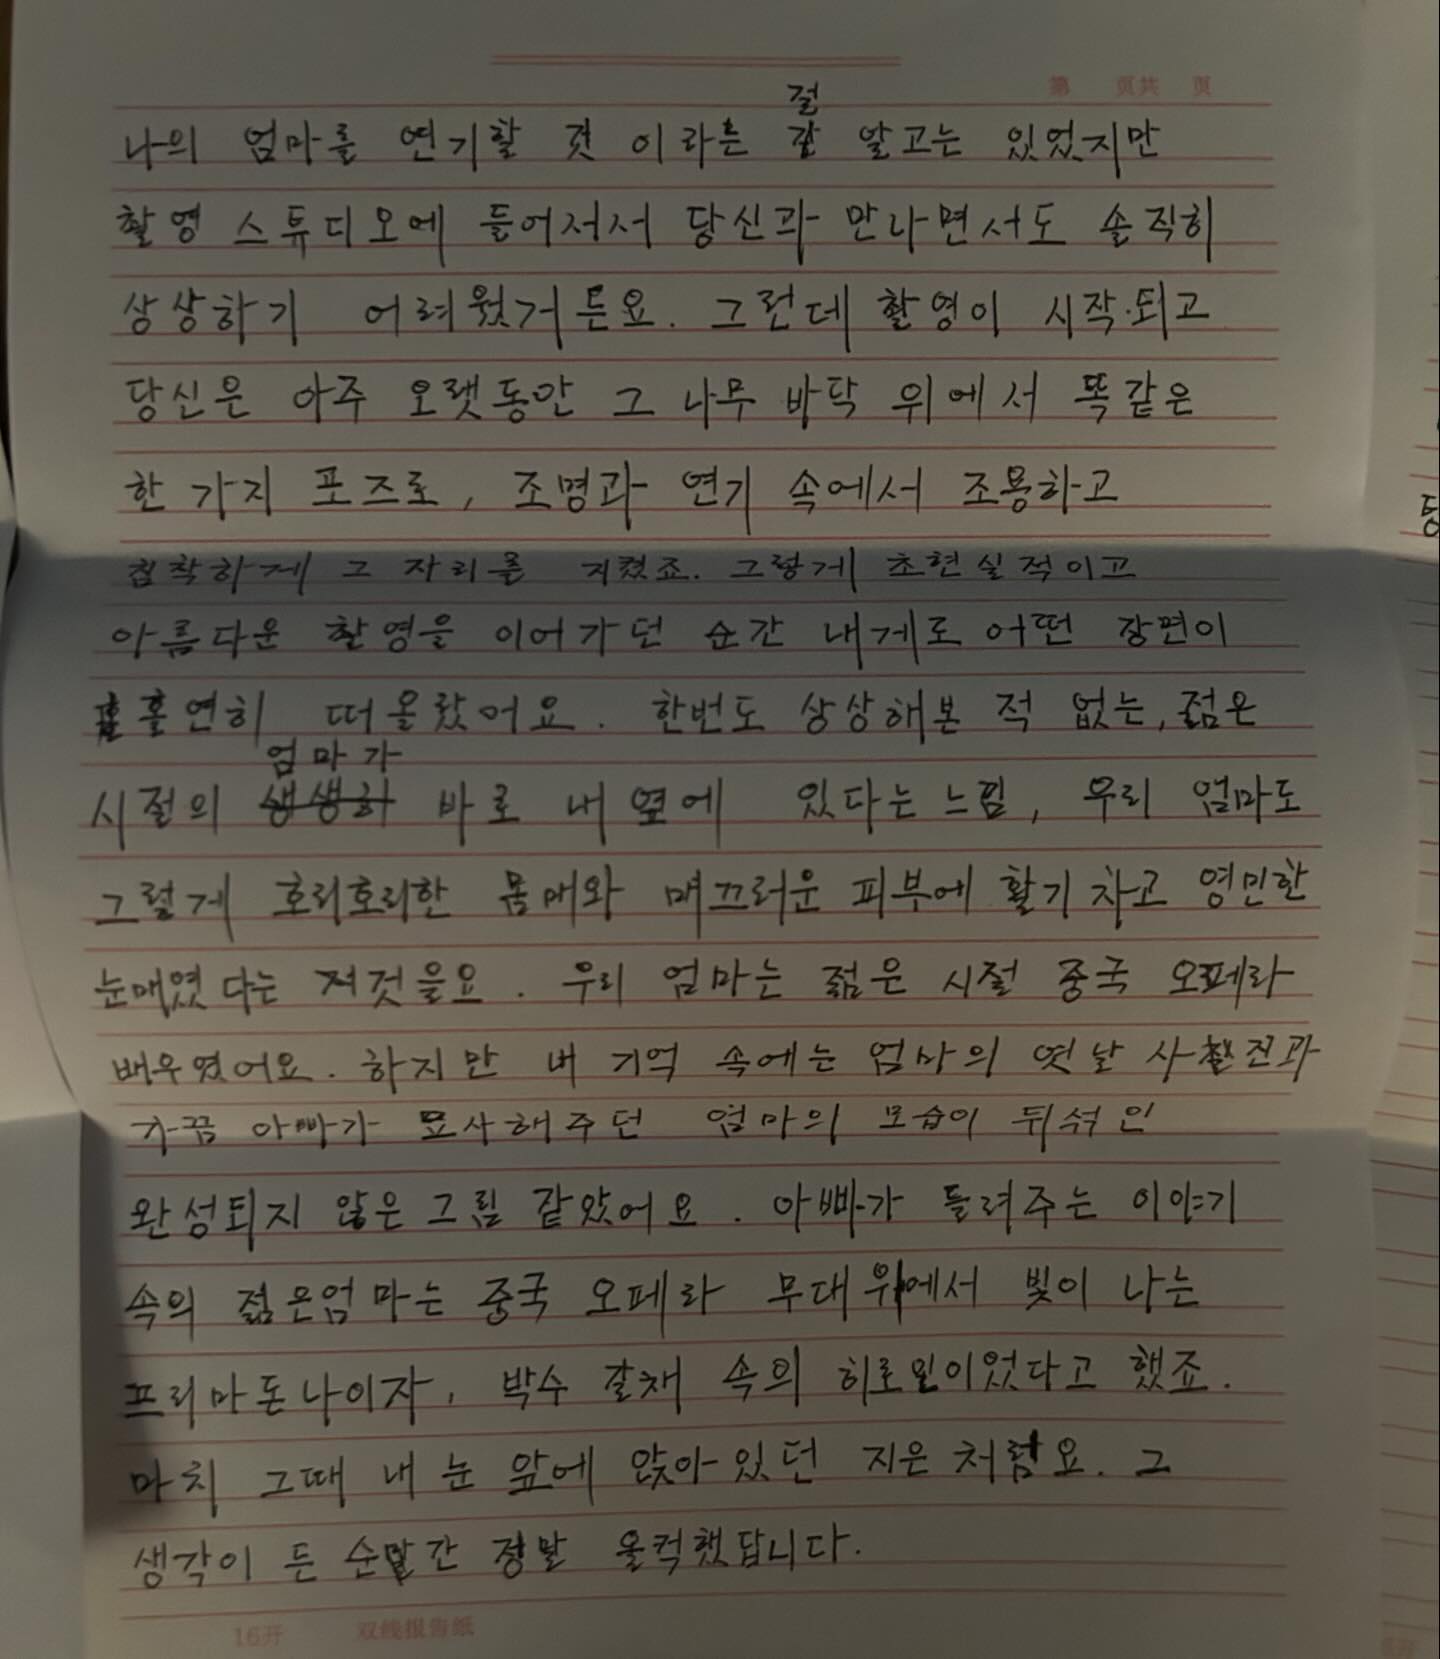 第 页共 页
걸
나의 엄마를 연기할 것 이라는 잘 알고는 있었지만
촬영 스튜디오에 들어서서 당신과 만나면서도 솔직히
상상하기 어려웠거든요. 그런데 촬영이 시작되고
당신은 아주 오랫동안 그 나무 바닥 위에서 똑같은
한 가지 포즈로, 조명과 연기 속에서 조용하고
침착하게 그 자리를 지켰죠. 그렇게 초현실적이고
아름다운 촬영을 이어가던 순간 내게로 어떤 장면이
홀연히 떠올랐어요. 한번도 상상해본 적 없는, 젊은
엄마가
시절의 생생히 바로 내 옆에 있다는 느낌, 우리 엄마도
그렇게 호리호리한 몸매와 매끄러운 피부에 활기 차고 영민한
눈매였다는 저것을요. 우리 엄마는 젊은 시절 중국 오페라
배우였어요. 하지만 내 기억 속에는 엄마의 옛날 사진과
가끔 아빠가 묘사해주던 엄마의 모습이 뒤섞인
완성되지 않은 그림 같았어요. 아빠가 들려주는 이야기
속의 젊은엄마는 중국 오페라 무대 위에서 빛이 나는
프리마돈나이자, 박수 갈채 속의 히로인이었다고 했죠.
마치 그때 내 눈 앞에 앉아있던 지은처럼요. 그
생각이 든 순간 정말 울컥했답니다.
16开 双线报告纸